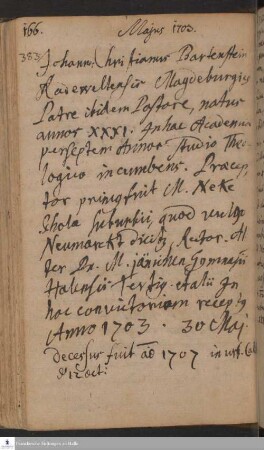 166. Majus 1703.
383 Johann: Christianus Bartenstein
Radewellensis Magdeburgicus
Patre ibidem Pastore, natus
annos XXXI. In hac Academia
per septem Annos studio Theo
logico incumbens. Præcep
tor primus fuit M. Neke
Schola suburbii, quod vulgo
Neumarckt dicitur, Rector. Al
ter Dn. M. Jänichen Gymnasii
Halensis tertius. et alii In
hoc convictorium receptus
Anno 1703. 30 Maj
Decessus fuit ad 1707 in
d 12 oct: